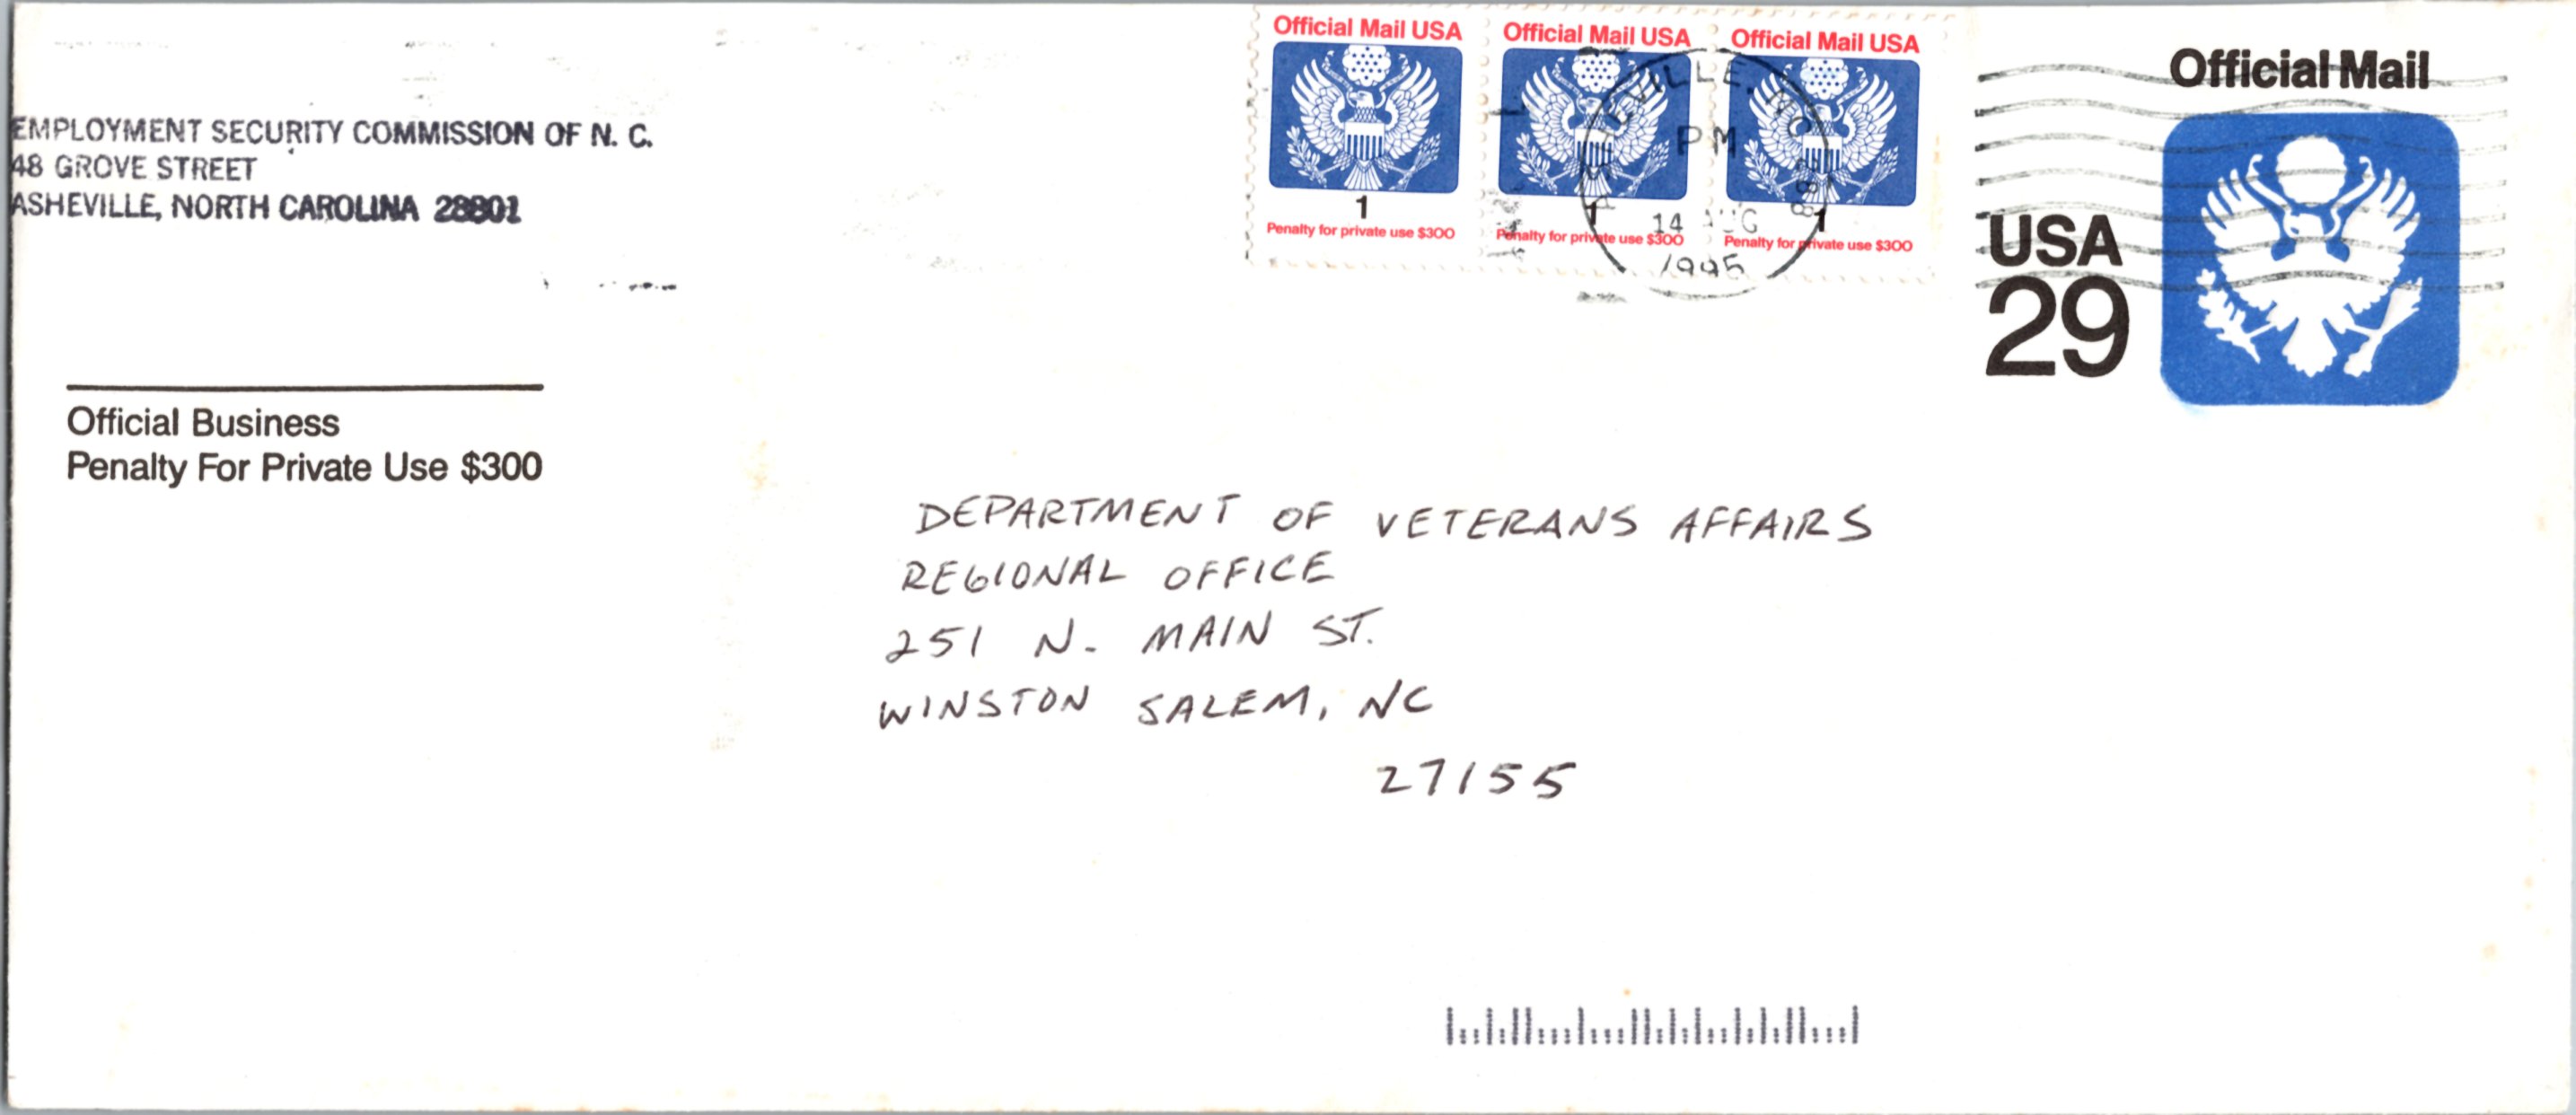 EMPLOYMENT SECURITY COMMISSION OF N. C.
48 GROVE STREET
ASHEVILLE, NORTH CAROLINA 28801
Official Business
Penalty For Private Use $300
Official Mail USA
1
Penalty for private use $300
Official Mail USA
1
Penalty for private use $300
Official Mail USA
1
Penalty for private use $300
ASHEVILLE, NC 288
PM
14 AUG
1995
Official Mail
USA
29
DEPARTMENT OF VETERANS AFFAIRS
REGIONAL OFFICE
251 N. MAIN ST.
WINSTON SALEM, NC
27155